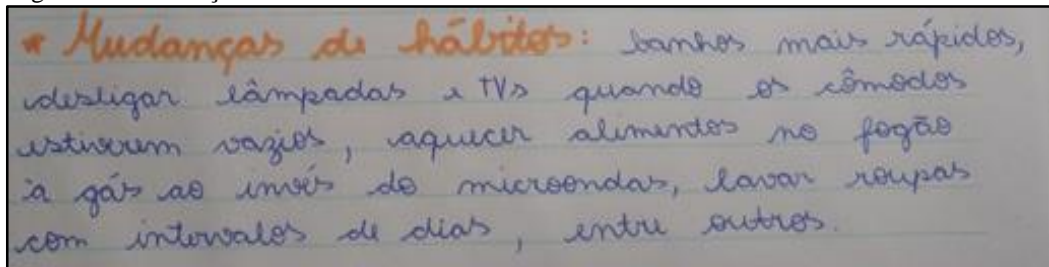 * Mudanças de hábitos: banhos mais rápidos,
desligar lâmpadas e TVs quando os cômodos
estiverem vazios, aquecer alimentos no fogão
à gás ao invés do microondas, lavar roupas
com intervalos de dias, entre outros.